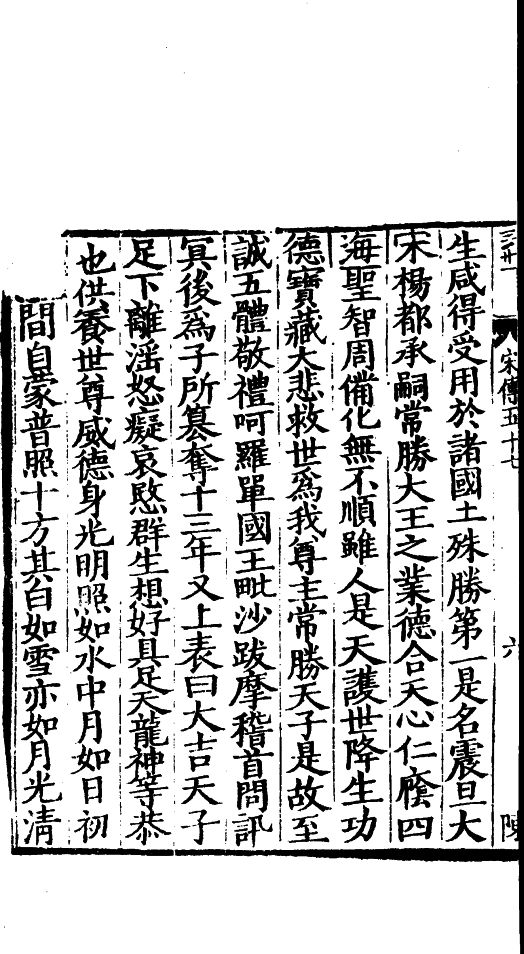 宋傳五十七
六
陳
生咸得受用於諸國土殊勝第一是名震旦大
宋楊都承嗣常勝大王之業德合天心仁廕四
海聖智周備化無不順雖人是天護世降生功
德寶藏大悲救世爲我尊主常勝天子是故至
誠五體敬禮呵羅單國王毗沙跋摩稽首問訊
其後爲子所篡奪十三年又上表曰大吉天子
足下離淫怒癡哀愍群生想好具足天龍神等恭
也供養世尊威德身光明照如水中月如日初
間白豪普照十方其白如雪亦如月光淸